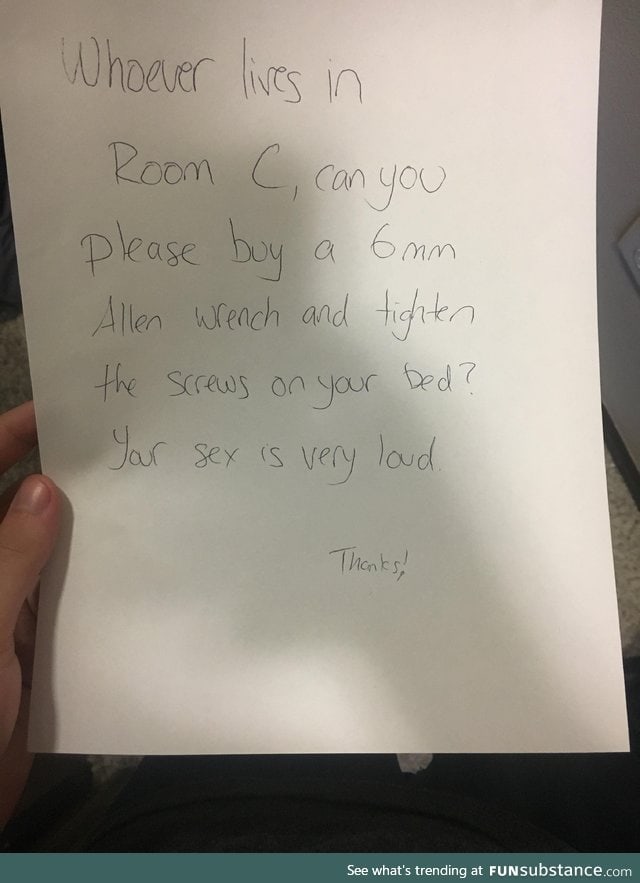 Whoever lives in
Room C, can you
please buy a 6mm
Allen wrench and tighten
the screws on your bed?
Your sex is very loud.
Thanks!
See what's trending at FUNsubstance.com